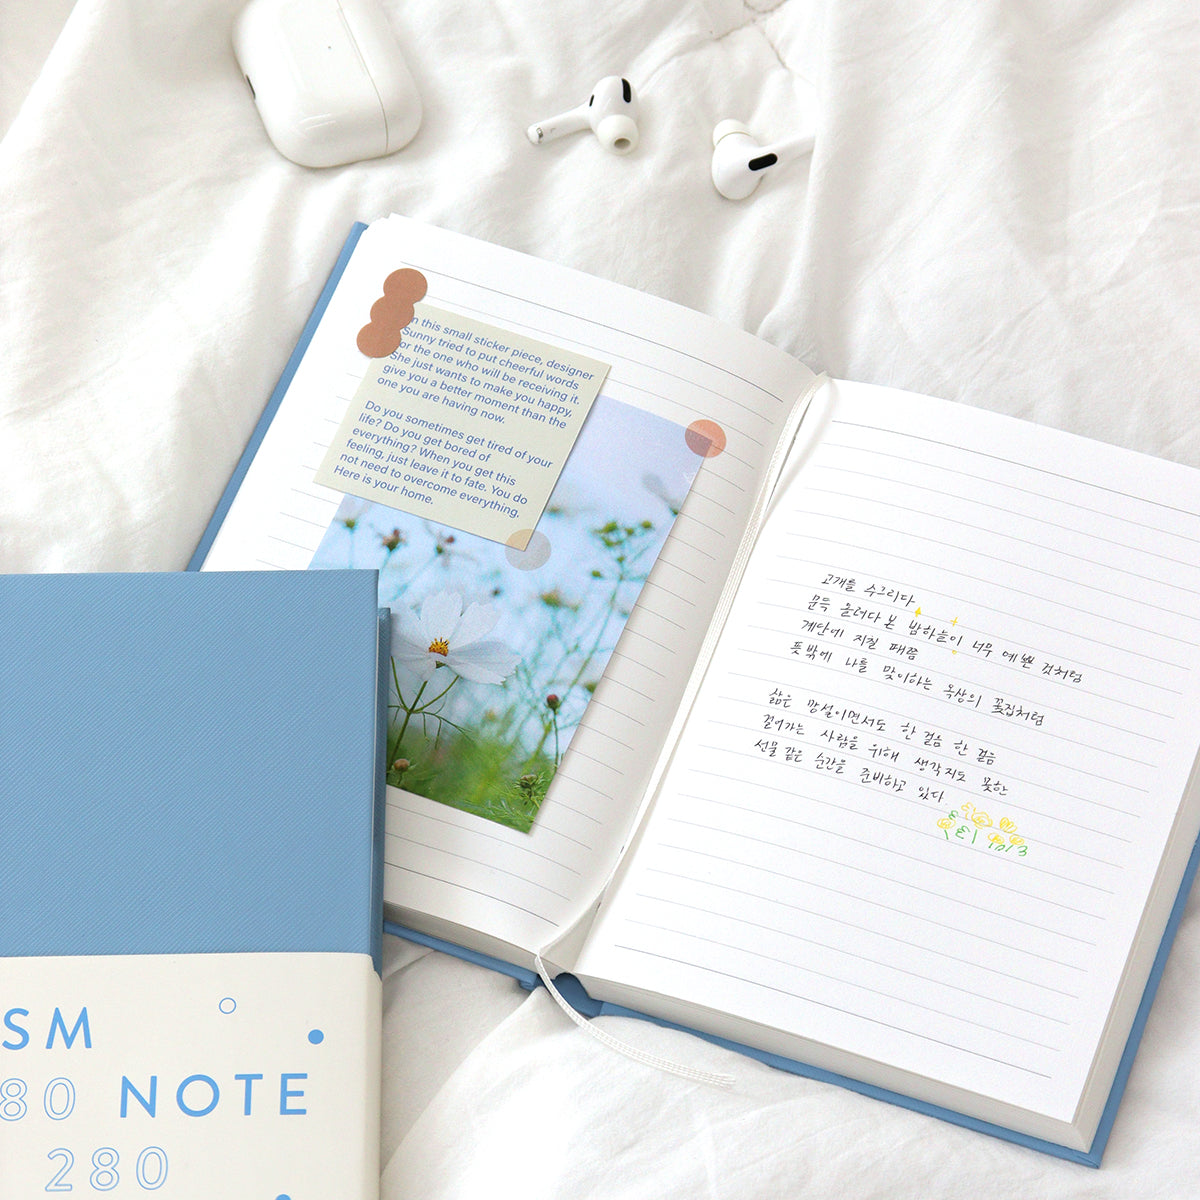 n this small sticker piece, designer
Sunny tried to put cheerful words
for the one who will be receiving it.
She just wants to make you happy,
give you a better moment than the
one you are having now.
Do you sometimes get tired of your
life? Do you get bored of
everything? When you get this
feeling, just leave it to fate. You do
not need to overcome everything.
Here is your home.
고개를 수그리다
문득 올려다 본 밤하늘이 너무 예쁜 것처럼
계단에 지칠 때쯤
뜻밖에 나를 맞이하는 옥상의 꽃집처럼
삶은 망설이면서도 한 걸음 한 걸음
걸어가는 사람을 위해 생각지도 못한
선물 같은 순간을 준비하고 있다.
SM
80 NOTE
280